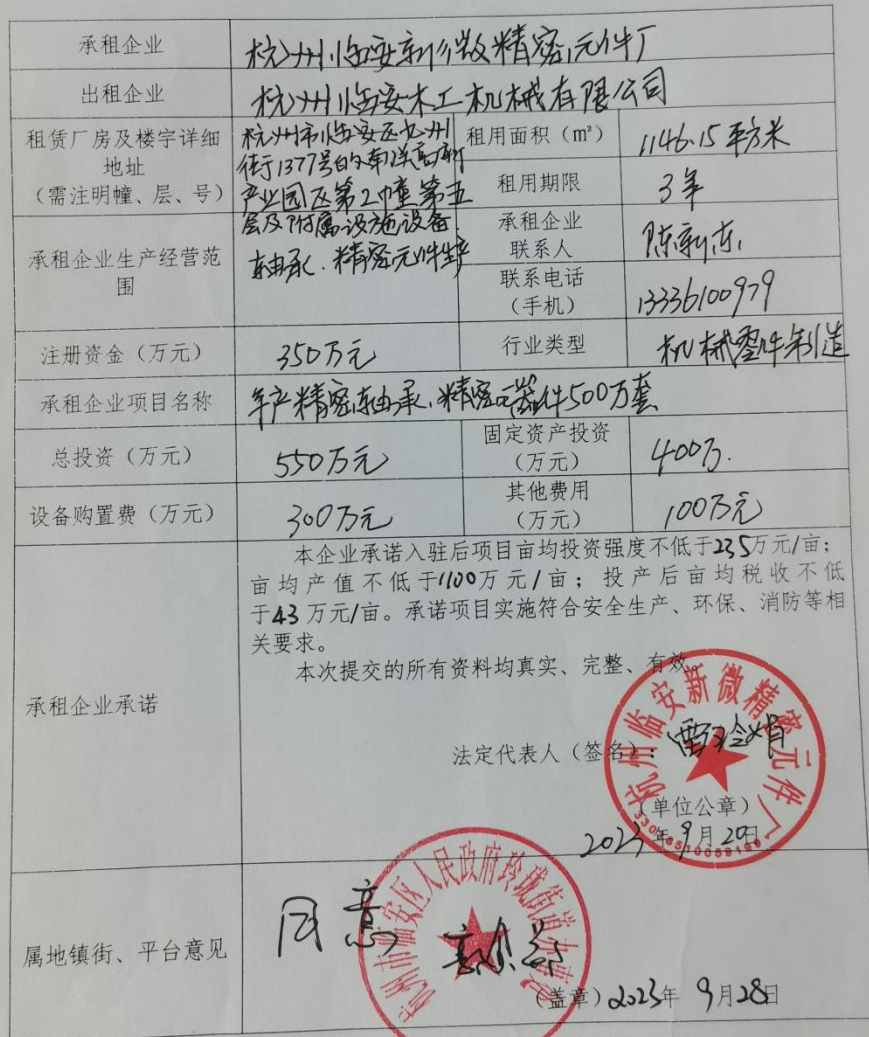 承租企业 杭州临安新微精密元件厂
出租企业 杭州临安木工机械有限公司
租赁厂房及楼宇详细 杭州市临安区九州
地址 街1377号的
（需注明幢、层、号） 产业园区第2幢第五
层及附属设施设备
租用面积（m²） 1146.15平方米
租用期限 3年
承租企业生产经营范
围 轴承、精密元件生产
承租企业
联系人 陈新东
联系电话
（手机） 13336100979
注册资金（万元） 350万元 行业类型 机械零件制造
承租企业项目名称 年产精密轴承、精密元器件500万套
总投资（万元） 550万元 固定资产投资
（万元） 400万.
设备购置费（万元） 300万元 其他费用
（万元） 100万元
承租企业承诺
本企业承诺入驻后项目亩均投资强度不低于235万元/亩；
亩均产值不低于1100万元/亩；投产后亩均税收不低
于43万元/亩。承诺项目实施符合安全生产、环保、消防等相
关要求。
本次提交的所有资料均真实、完整、有效。
法定代表人（签名）：
杭州临安新微精密元件厂
（单位公章）
2023年9月20日
属地镇街、平台意见 同意
杭州市临安区人民政府玲珑街道办事处
（盖章）2023年9月28日